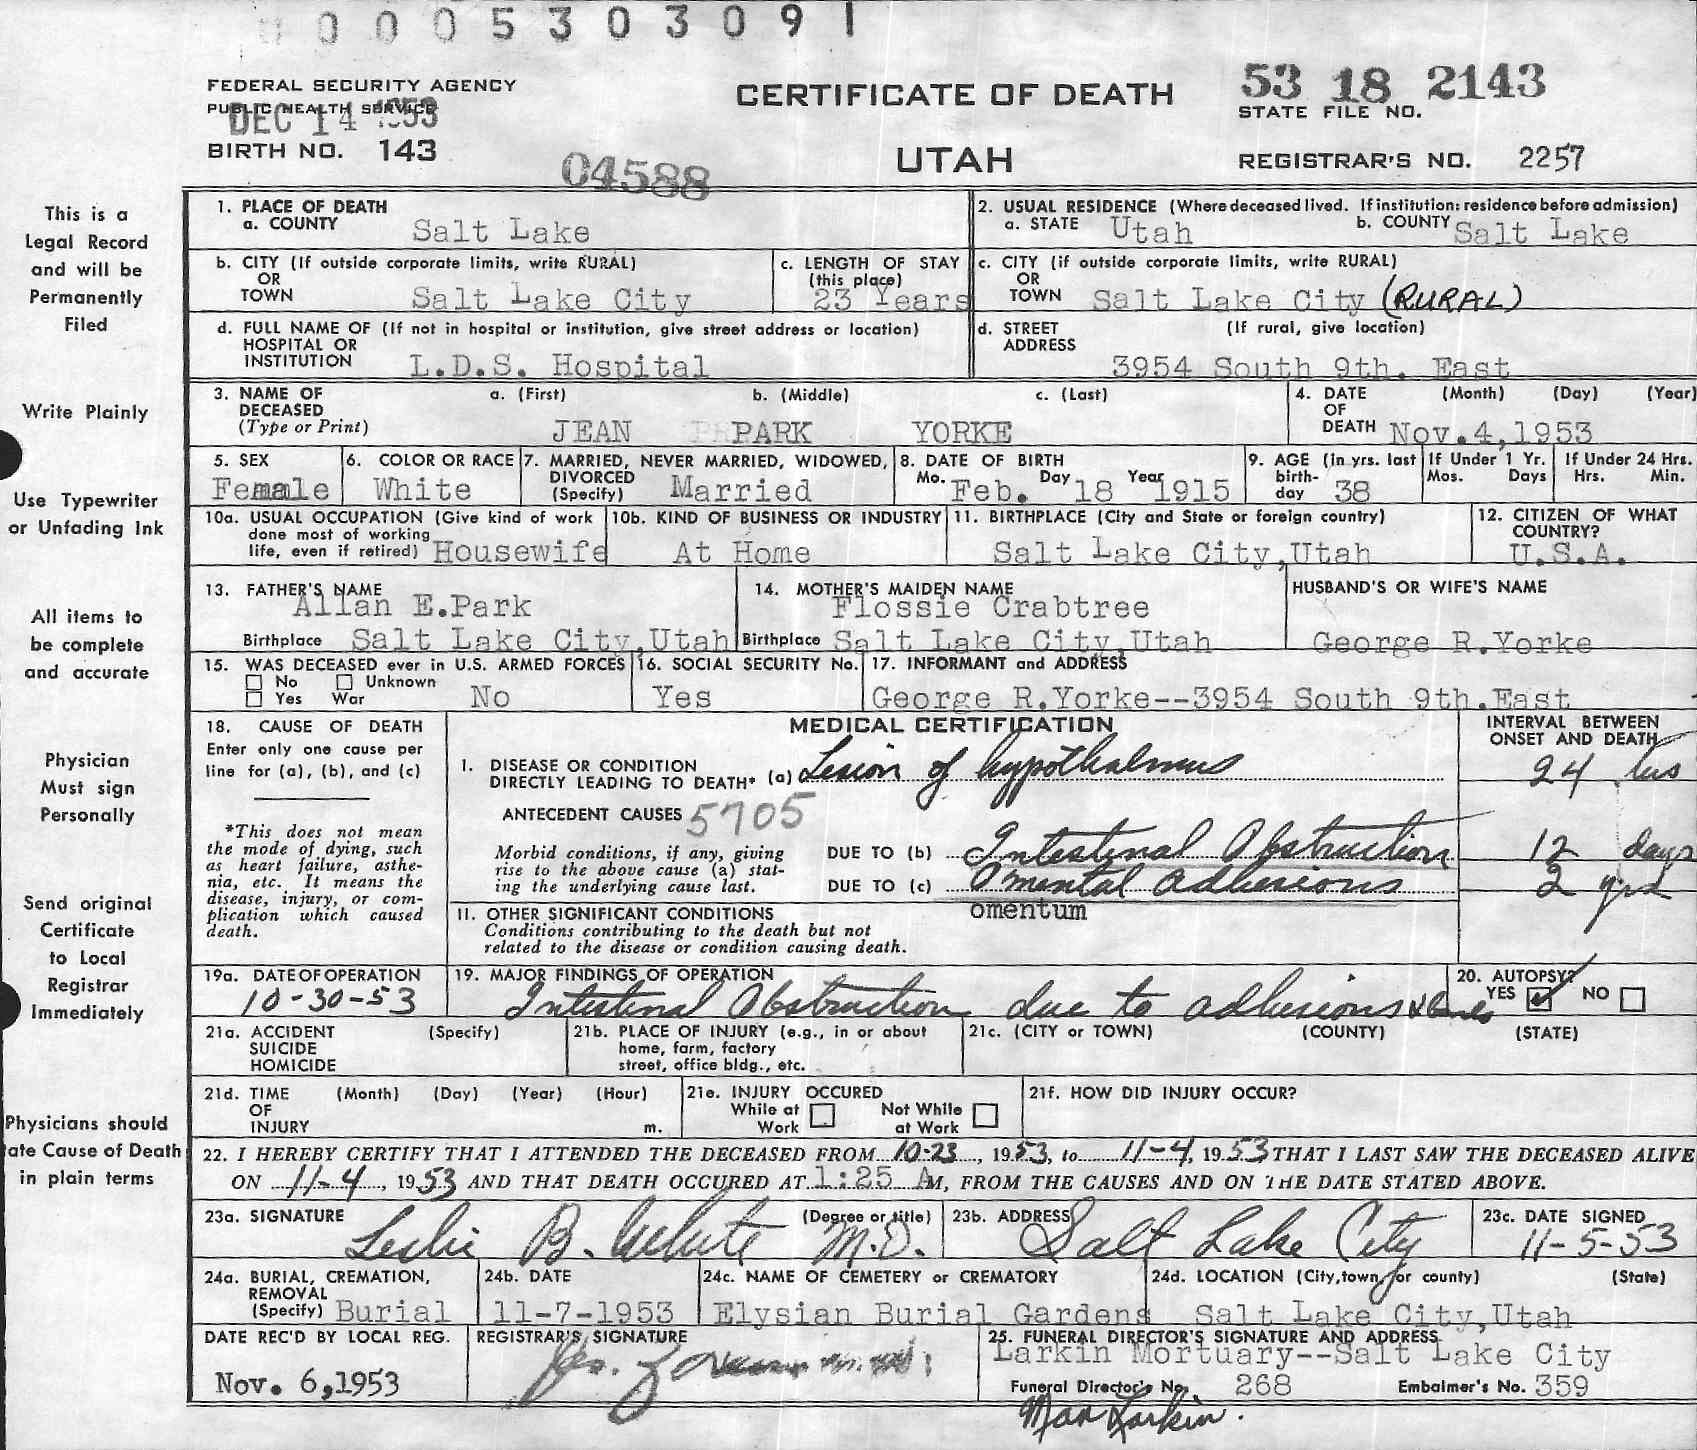 0 0 0 5 3 0 3 0 9 1
FEDERAL SECURITY AGENCY
PUBLIC HEALTH SERVICE
DEC 14 1953
BIRTH NO. 143
04588
CERTIFICATE OF DEATH
UTAH
53 18 2143
STATE FILE NO.
REGISTRAR'S NO. 2257
This is a
Legal Record
and will be
Permanently
Filed
Write Plainly
Use Typewriter
or Unfading Ink
All items to
be complete
and accurate
Physician
Must sign
Personally
Send original
Certificate
to Local
Registrar
Immediately
Physicians should
ate Cause of Death
in plain terms
1. PLACE OF DEATH
a. COUNTY Salt Lake
2. USUAL RESIDENCE (Where deceased lived. If institution: residence before admission)
a. STATE Utah b. COUNTY Salt Lake
b. CITY (If outside corporate limits, write RURAL)
OR
TOWN Salt Lake City
c. LENGTH OF STAY
(this place)
23 Years
c. CITY (if outside corporate limits, write RURAL)
OR
TOWN Salt Lake City (RURAL)
d. FULL NAME OF (If not in hospital or institution, give street address or location)
HOSPITAL OR
INSTITUTION L.D.S. Hospital
d. STREET (If rural, give location)
ADDRESS
3954 South 9th. East
3. NAME OF a. (First) b. (Middle) c. (Last)
DECEASED
(Type or Print) JEAN PARK YORKE
4. DATE (Month) (Day) (Year)
OF
DEATH Nov.4,1953
5. SEX
Female
6. COLOR OR RACE
White
7. MARRIED, NEVER MARRIED, WIDOWED,
DIVORCED
(Specify) Married
8. DATE OF BIRTH
Mo. Feb. Day 18 Year 1915
9. AGE (In yrs. last
birth-
day 38
If Under 1 Yr.
Mos. Days
If Under 24 Hrs.
Hrs. Min.
10a. USUAL OCCUPATION (Give kind of work
done most of working
life, even if retired) Housewife
10b. KIND OF BUSINESS OR INDUSTRY
At Home
11. BIRTHPLACE (City and State or foreign country)
Salt Lake City,Utah
12. CITIZEN OF WHAT
COUNTRY?
U.S.A.
13. FATHER'S NAME
Allan E.Park
Birthplace Salt Lake City,Utah
14. MOTHER'S MAIDEN NAME
Flossie Crabtree
Birthplace Salt Lake City,Utah
HUSBAND'S OR WIFE'S NAME
George R.Yorke
15. WAS DECEASED ever in U.S. ARMED FORCES
No Unknown
Yes War No
16. SOCIAL SECURITY No.
Yes
17. INFORMANT and ADDRESS
George R.Yorke--3954 South 9th.East
18. CAUSE OF DEATH
Enter only one cause per
line for (a), (b), and (c)
*This does not mean
the mode of dying, such
as heart failure, asthe-
nia, etc. It means the
disease, injury, or com-
plication which caused
death.
MEDICAL CERTIFICATION
INTERVAL BETWEEN
ONSET AND DEATH
I. DISEASE OR CONDITION
DIRECTLY LEADING TO DEATH* (a) Lesion of hypothalmus 24 hrs
ANTECEDENT CAUSES 5705
Morbid conditions, if any, giving
rise to the above cause (a) stat-
ing the underlying cause last.
DUE TO (b) Intestinal Obstruction 12 days
DUE TO (c) Omental adhesions 2 yrs
omentum
11. OTHER SIGNIFICANT CONDITIONS
Conditions contributing to the death but not
related to the disease or condition causing death.
19a. DATE OF OPERATION
10-30-53
19. MAJOR FINDINGS OF OPERATION
Intestinal Obstruction due to adhesions
20. AUTOPSY?
YES NO
21a. ACCIDENT (Specify)
SUICIDE
HOMICIDE
21b. PLACE OF INJURY (e.g., in or about
home, farm, factory
street, office bldg., etc.
21c. (CITY or TOWN) (COUNTY) (STATE)
21d. TIME (Month) (Day) (Year) (Hour)
OF
INJURY m.
21e. INJURY OCCURED
While at Work Not While at Work
21f. HOW DID INJURY OCCUR?
22. I HEREBY CERTIFY THAT I ATTENDED THE DECEASED FROM 10-23, 1953, to 11-4, 1953, THAT I LAST SAW THE DECEASED ALIVE
ON 11-4, 1953 AND THAT DEATH OCCURED AT 1:25 AM, FROM THE CAUSES AND ON THE DATE STATED ABOVE.
23a. SIGNATURE (Degree or title)
Leslie B. White M.D.
23b. ADDRESS
Salt Lake City
23c. DATE SIGNED
11-5-53
24a. BURIAL, CREMATION,
REMOVAL
(Specify) Burial
24b. DATE
11-7-1953
24c. NAME OF CEMETERY or CREMATORY
Elysian Burial Gardens
24d. LOCATION (City,town, or county) (State)
Salt Lake City,Utah
DATE REC'D BY LOCAL REG.
Nov. 6,1953
REGISTRAR'S SIGNATURE
25. FUNERAL DIRECTOR'S SIGNATURE AND ADDRESS
Larkin Mortuary--Salt Lake City
Funeral Director's No. 268 Embalmer's No. 359
Max Larkin.